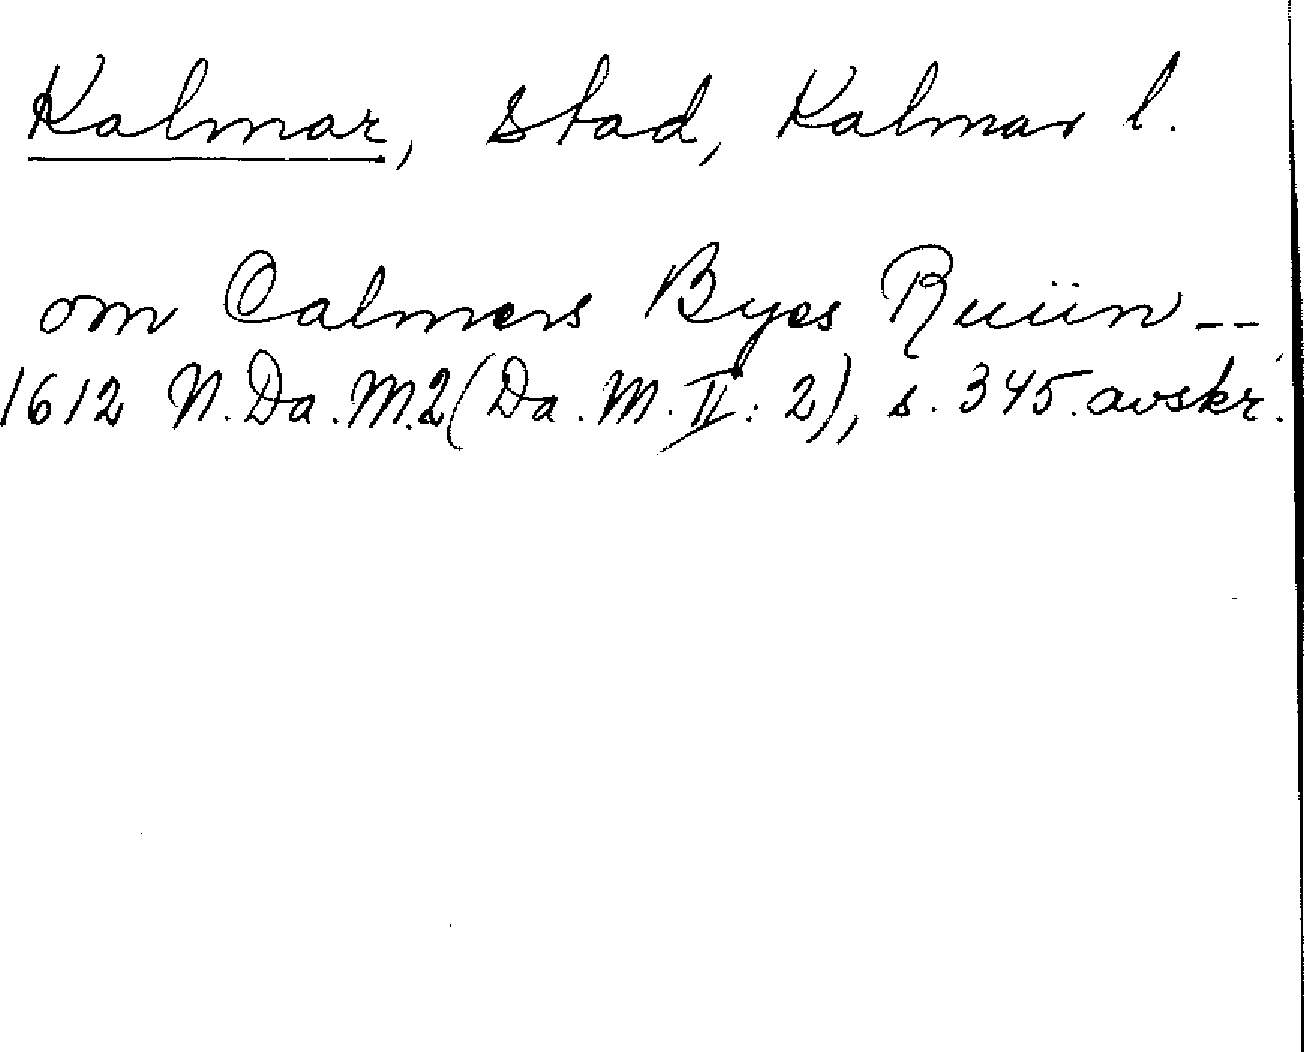 Kalmar, stad, Kalmar l.
om Calmers Byes Ruiin --
1612 N.Da.M.2(Da.M.II:2), s. 345. avskr.